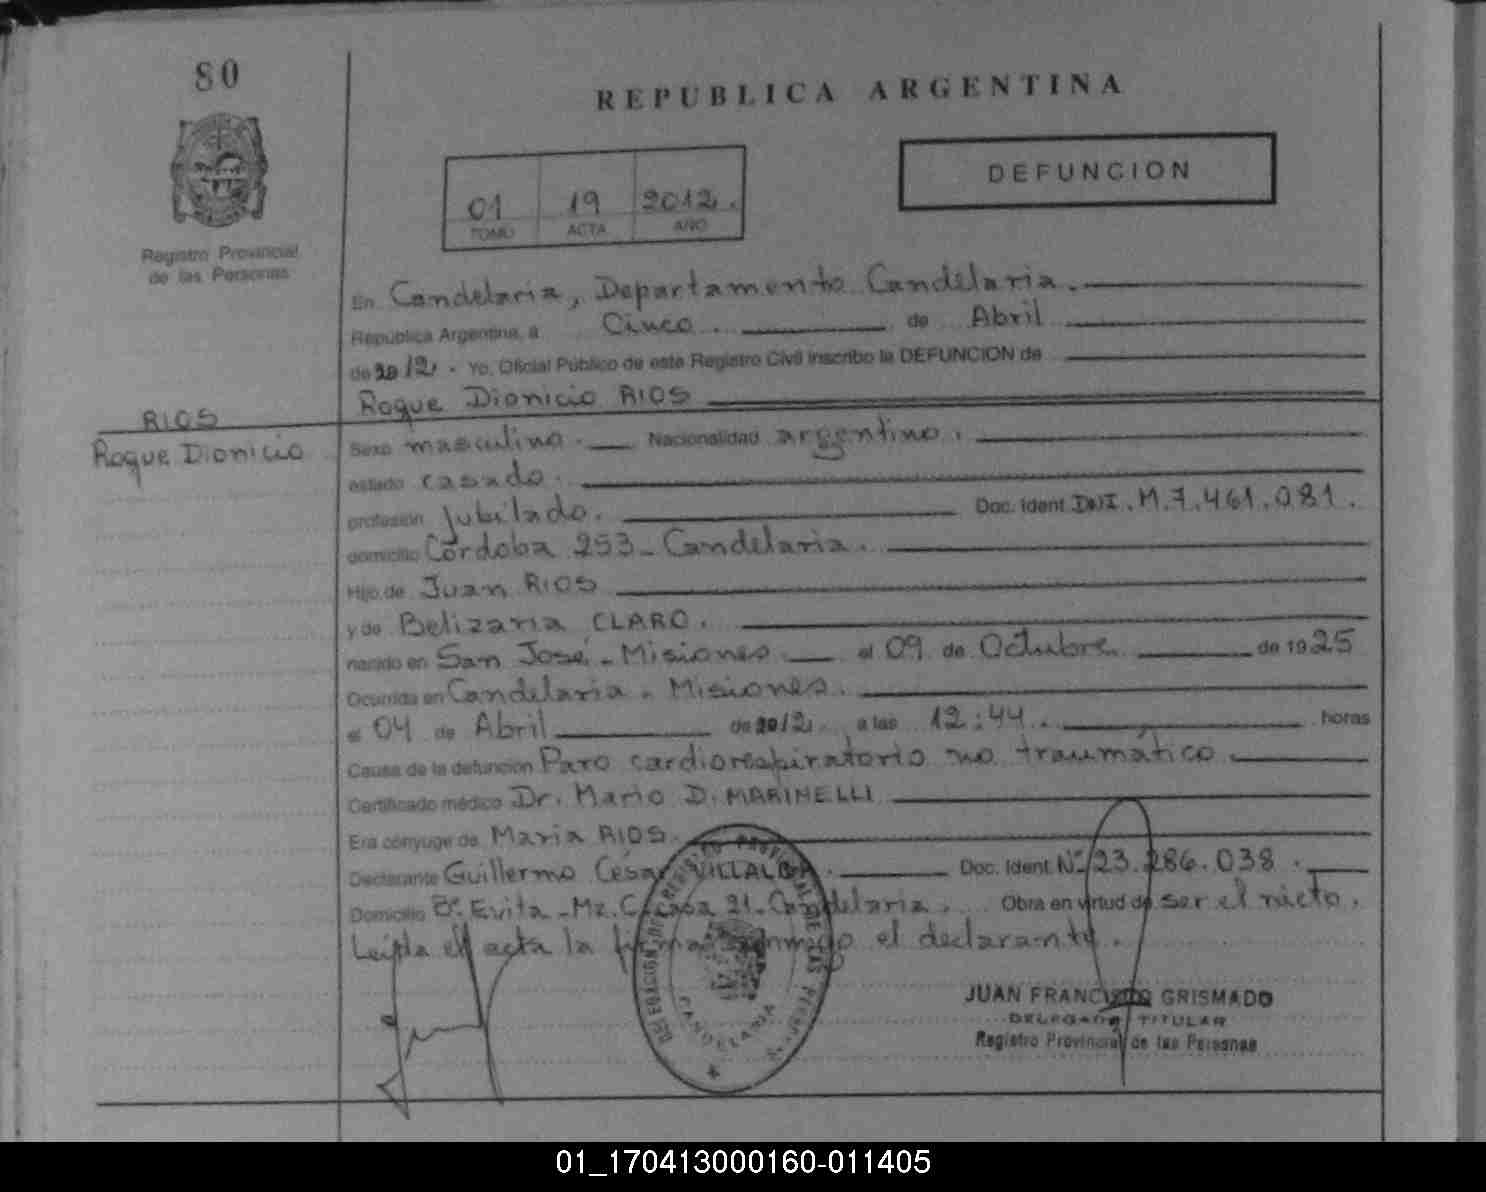 80
REPUBLICA ARGENTINA
DEFUNCION
01 19 2012.
TOMO ACTA AÑO
Registro Provincial
de las Personas
En Candelaria, Departamento Candelaria.
República Argentina, a Cinco. de Abril
de 2012. Yo, Oficial Público de este Registro Civil inscribo la DEFUNCION de
Roque Dionicio RIOS
RIOS
Roque Dionicio
Sexo masculino. Nacionalidad argentino.
estado casado.
profesión Jubilado. Doc. Ident. DNI. M.7.461.081.
domicilio Córdoba 253 - Candelaria.
Hijo de Juan RIOS
y de Belizaria CLARO.
nacido en San José - Misiones. el 09 de Octubre. de 1925
Ocurrida en Candelaria. Misiones.
el 04 de Abril de 2012. a las 12:44. horas
Causa de la defunción Paro cardiorespiratorio no traumático.
Certificado médico Dr. Mario D. MARINELLI
Era cónyuge de María RIOS.
Declarante Guillermo César VILLALBA. Doc. Ident. Nº 23.286.038.
Domicilio Bº Evita - Mz. C casa 21 - Candelaria. Obra en virtud de ser el nieto.
Leída el acta la firma conmigo el declarante.
DELEGACION DEL REGISTRO PROVINCIAL DE LAS PERSONAS
CANDELARIA
JUAN FRANCISCO GRISMADO
DELEGADO TITULAR
Registro Provincial de las Personas
01_170413000160-011405